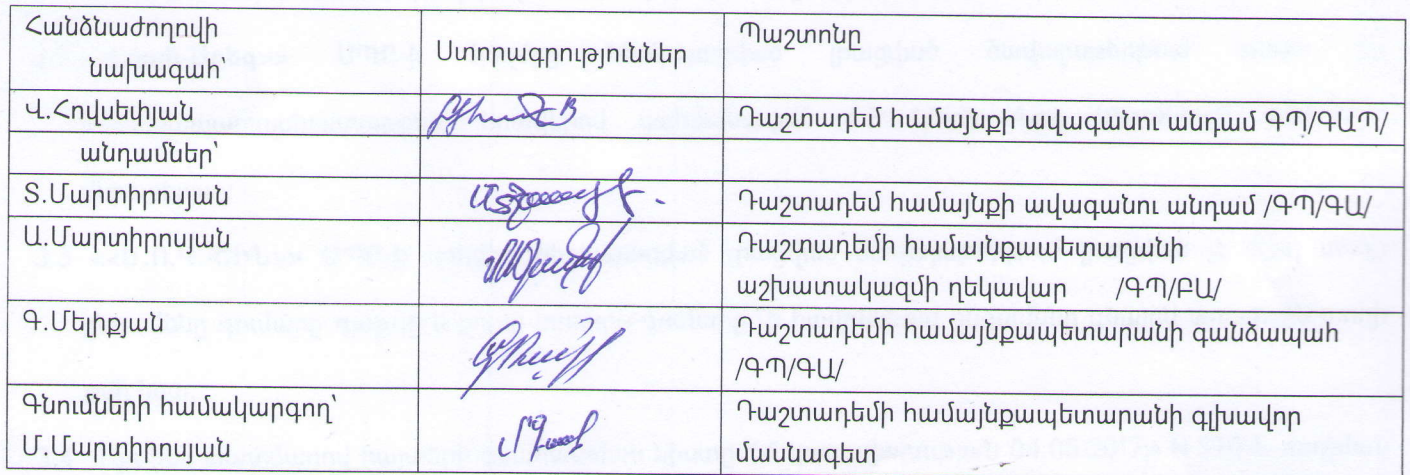 Հանձնաժողովի
նախագահ՝
Ստորագրություններ
Պաշտոնը
Վ.Հովսեփյան
Դաշտադեմ համայնքի ավագանու անդամ ԳՊ/ԳԱՊ/
անդամներ՝
Տ.Մարտիրոսյան
Դաշտադեմ համայնքի ավագանու անդամ /ԳՊ/ԳԱ/
Ա.Մարտիրոսյան
Դաշտադեմի համայնքապետարանի
աշխատակազմի ղեկավար /ԳՊ/ԲԱ/
Գ.Մելիքյան
Դաշտադեմի համայնքապետարանի գանձապահ
/ԳՊ/ԳԱ/
Գնումների համակարգող՝
Մ.Մարտիրոսյան
Դաշտադեմի համայնքապետարանի գլխավոր
մասնագետ